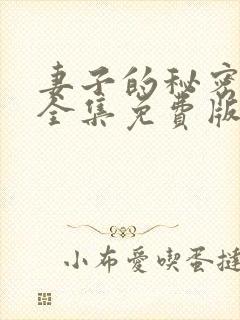 妻子的秘密
全集免费版
小布愛喫蛋撻